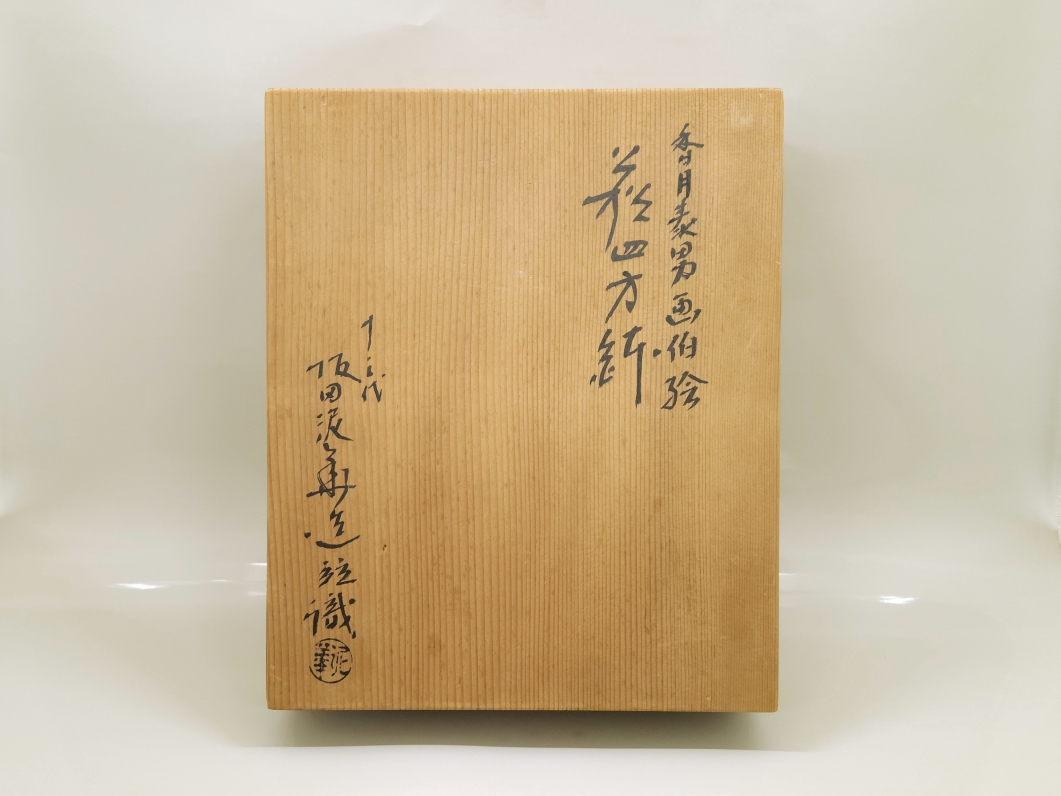 香月泰男画伯絵
萩四方鉢
十三代
坂田泥華造竝識
泥華